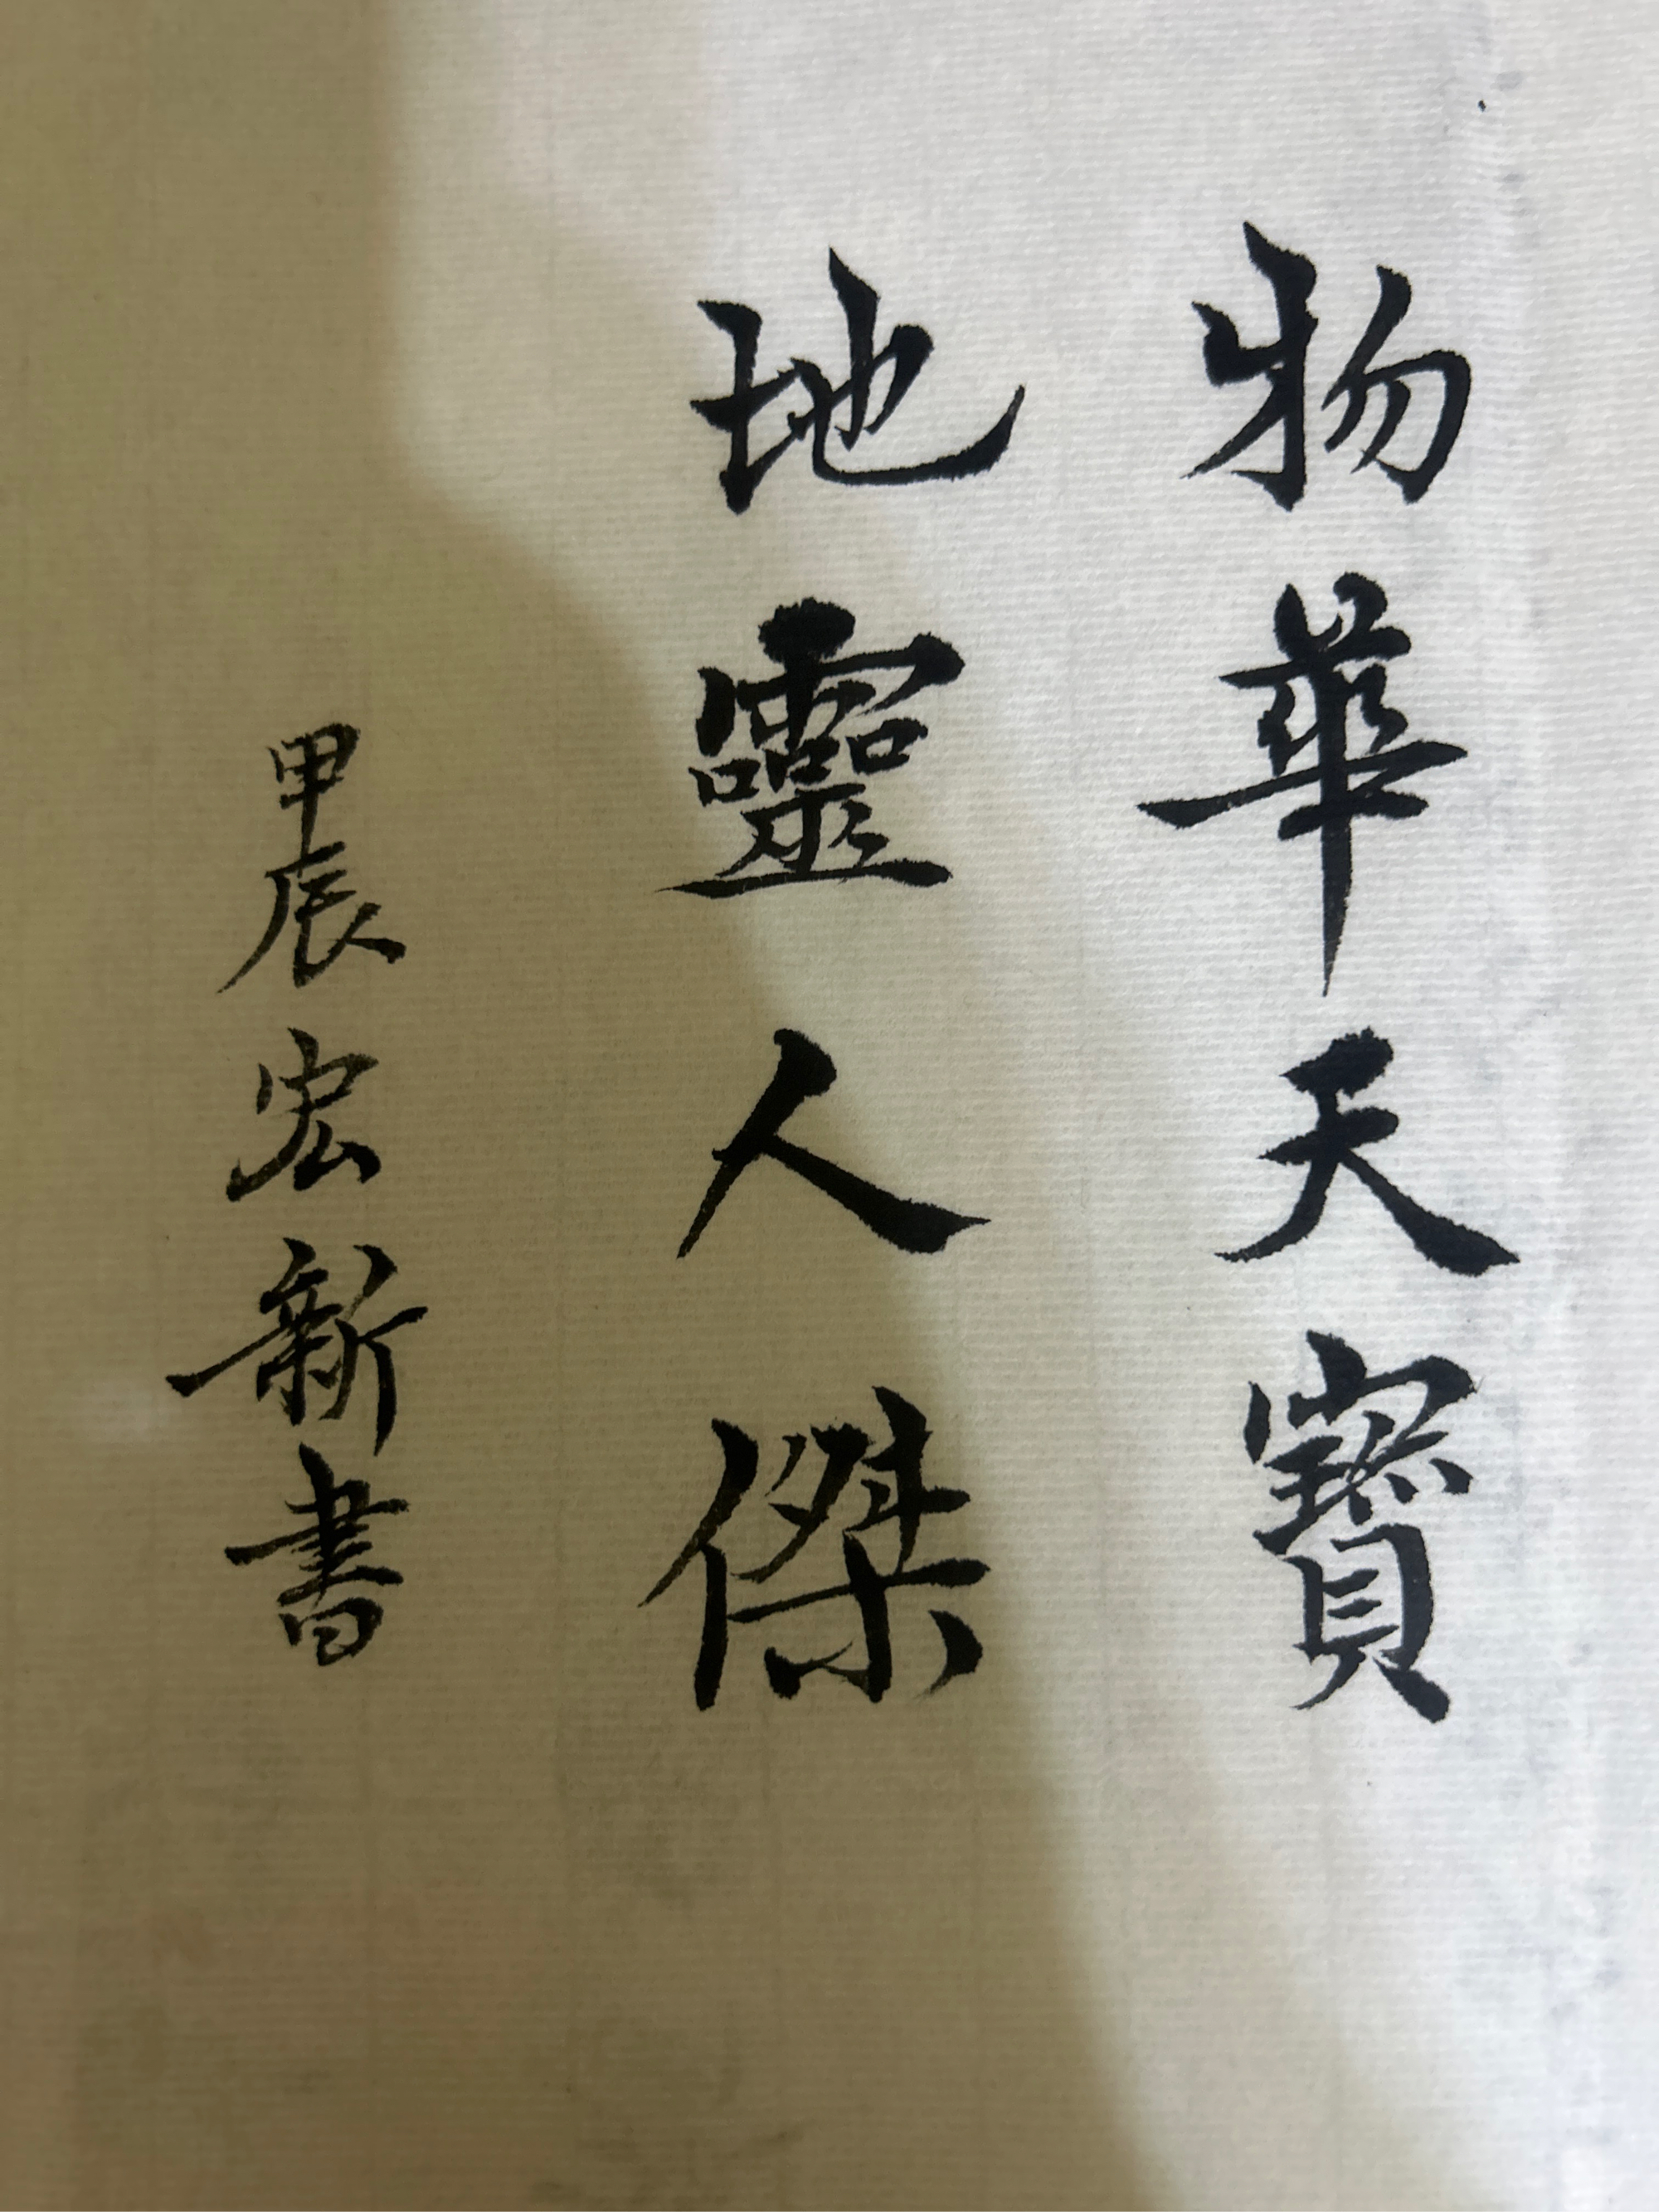 物華天寶
地靈人傑
甲辰宏新書